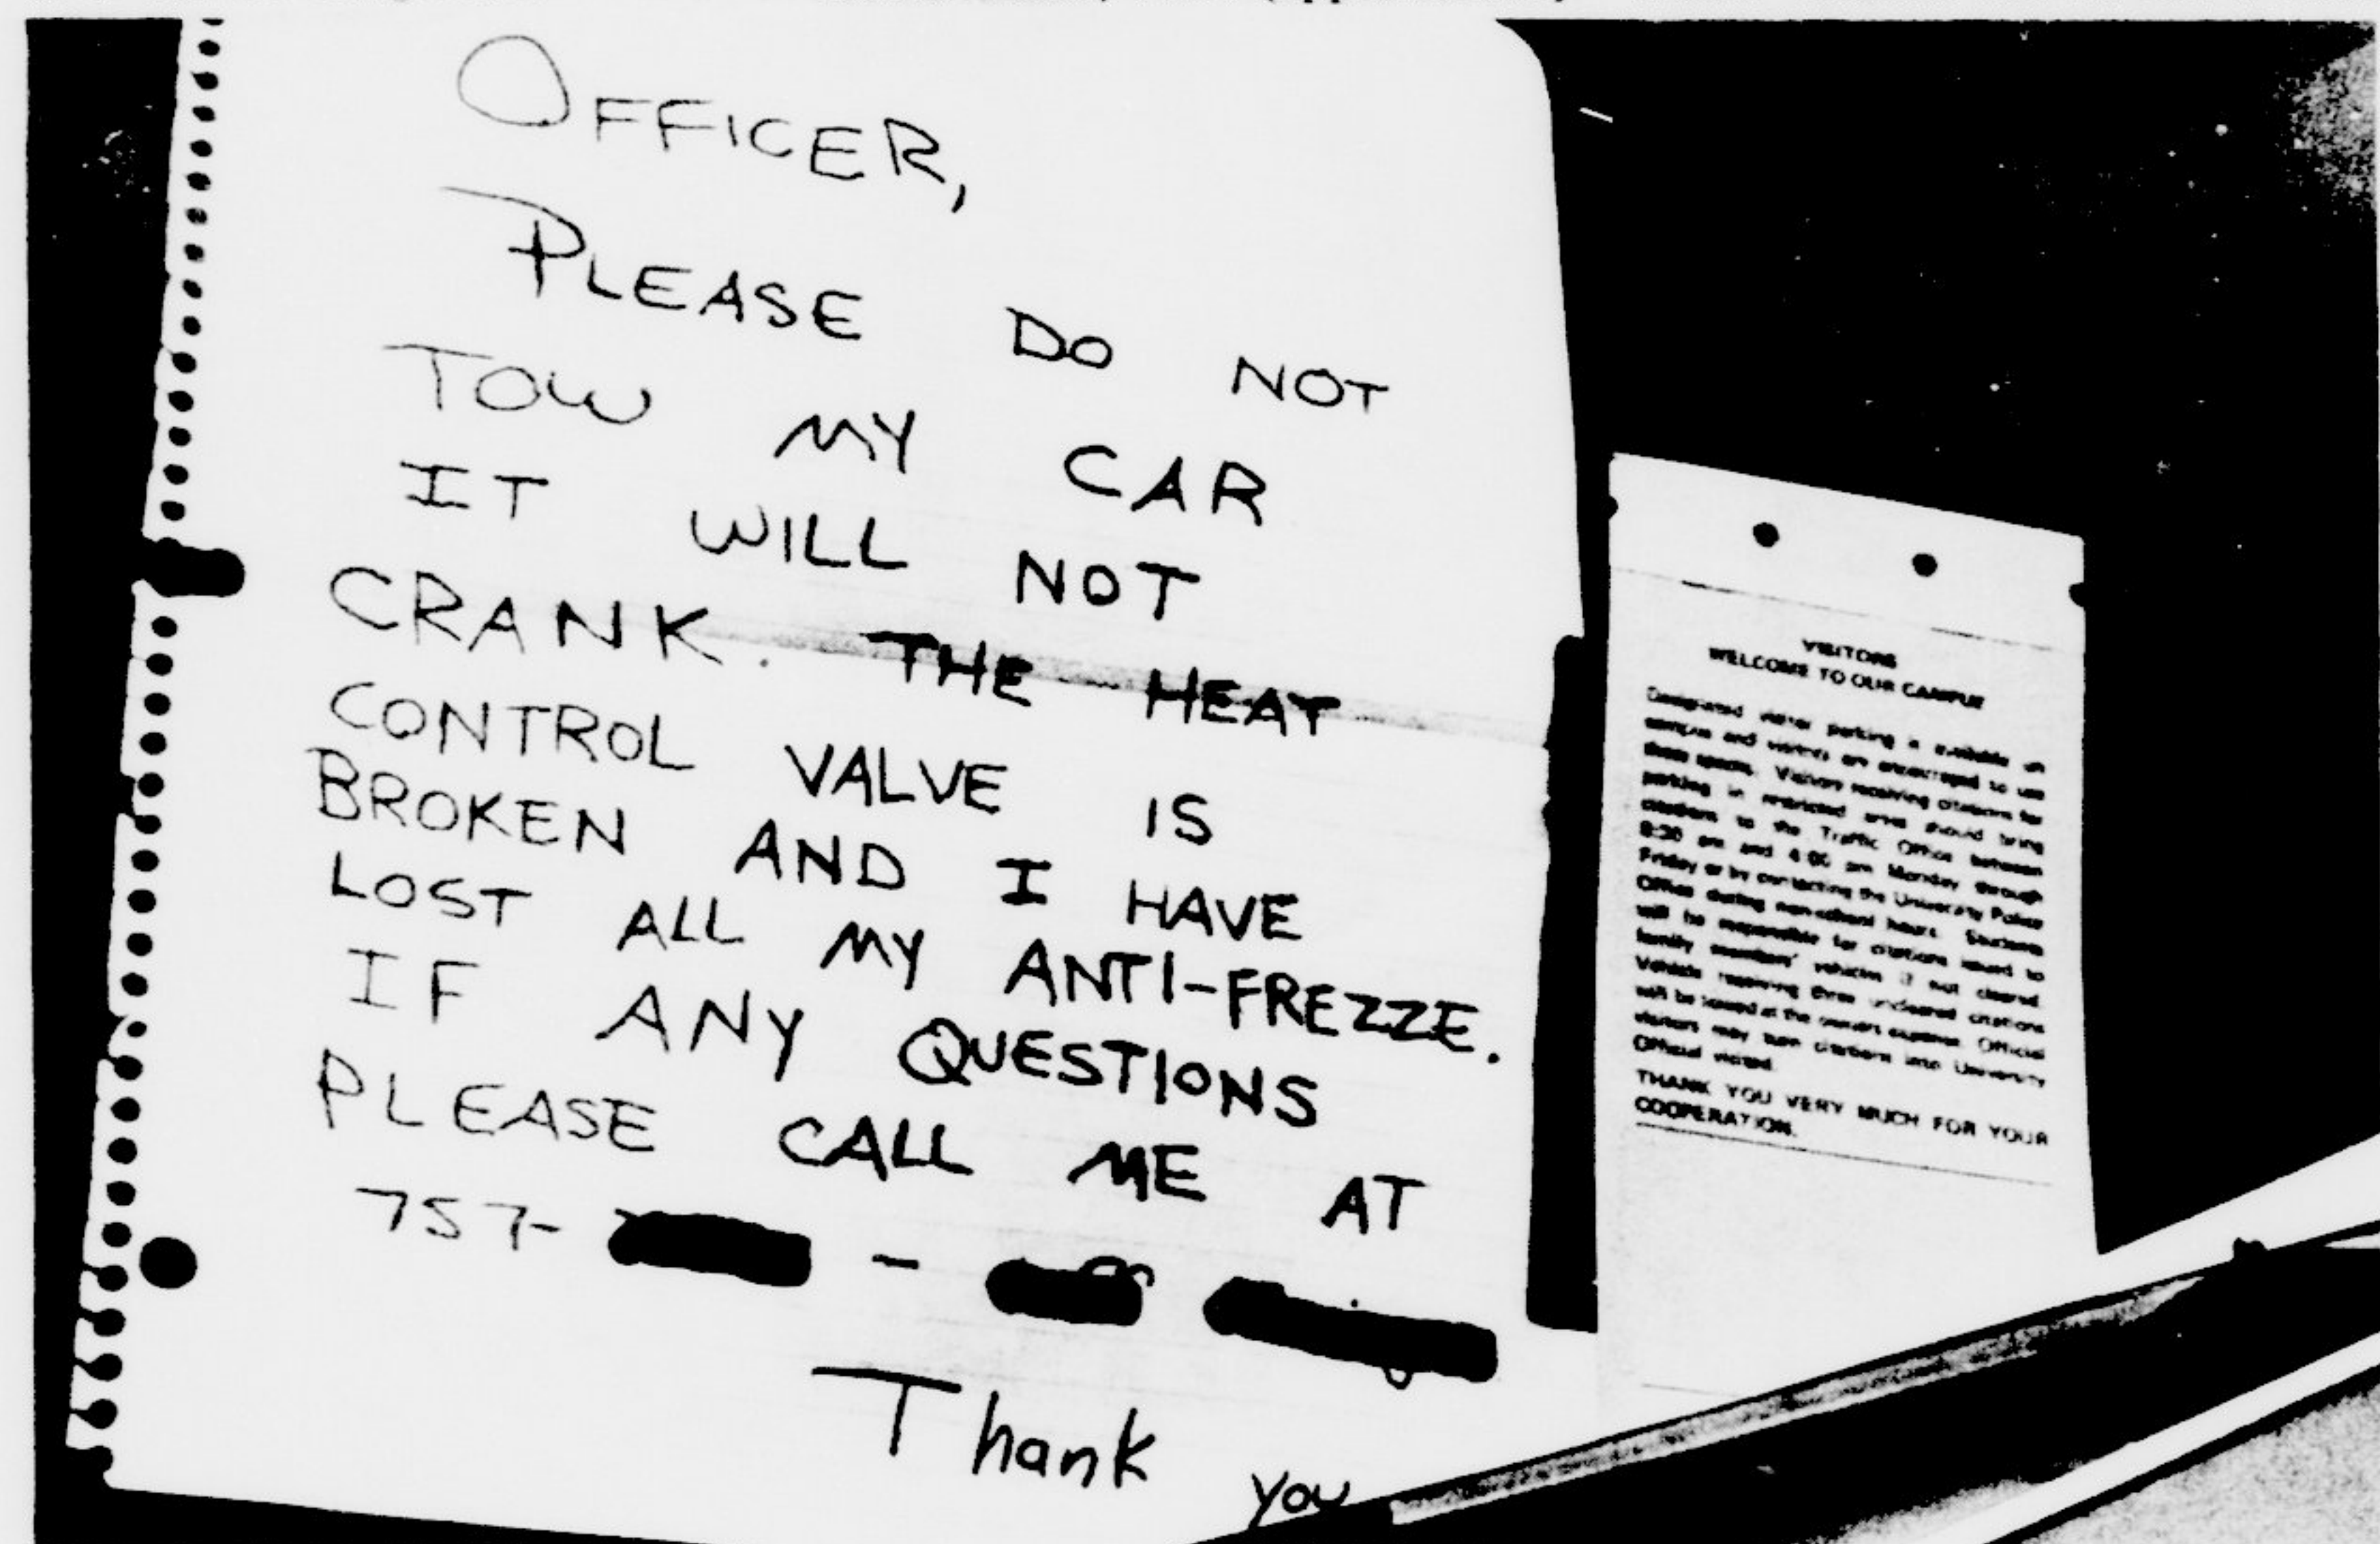 OFFICER,
PLEASE DO NOT
TOW MY CAR
IT WILL NOT
CRANK. THE HEAT
CONTROL VALVE IS
BROKEN AND I HAVE
LOST ALL MY ANTI-FREZZE.
IF ANY QUESTIONS
PLEASE CALL ME AT
757- -
Thank you
VISITORS
WELCOME TO OUR CAMPUS
Designated visitor parking is available on
campus and visitors are encouraged to use
these spaces. Visitors receiving citations for
parking in restricted areas should bring
citations to the Traffic Office between
8:30 am and 4:00 pm Monday through
Friday or by contacting the University Police
Office during non-school hours. Students
will be responsible for citations issued to
family members' vehicles if not cleared.
Vehicle receiving three uncleared citations
will be towed at the owners expense. Official
visitors may turn citations into University
Official visited.
THANK YOU VERY MUCH FOR YOUR
COOPERATION.